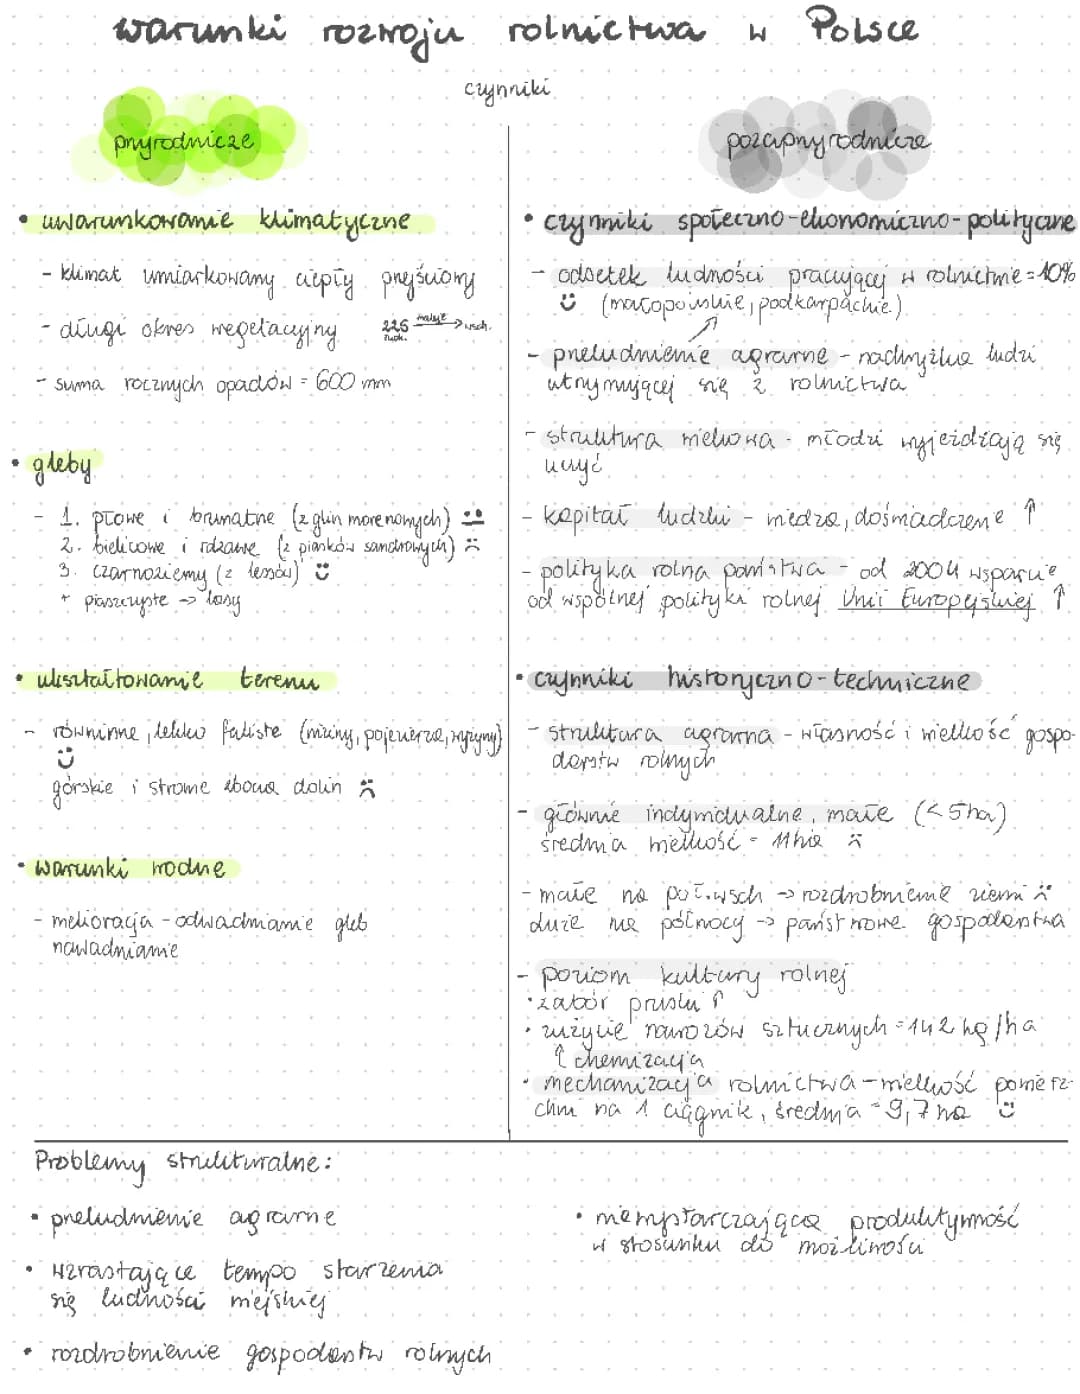 warunki rozwoju rolnictwa w Polsce
czynniki
przyrodnicze
• uwarunkowanie klimatyczne
- klimat umiarkowany ciepły przejściowy
- długi okres wegetacyjny 225 maleje → wsch.
- suma rocznych opadów = 600 mm
• gleby
- 1. płowe i brunatne (z glin morenowych)
2. bielicowe i rdzawe (z piasków sandrowych)
3. czarnoziemy (z lessów)
+ piaszczyste → lasy
• ukształtowanie terenu
- równinne, lekko faliste (niziny, pojezierza, wyżyny)
górskie i strome zbocza dolin
• warunki wodne
- melioracja - odwadnianie gleb
nawadnianie
pozaprzyrodnicze
• czynniki społeczno-ekonomiczno-polityczne
- odsetek ludności pracującej w rolnictwie = 10%
(małopolskie, podkarpackie)
- przeludnienie agrarne - nadwyżka ludzi
utrzymującej się z rolnictwa
- struktura wiekowa - młodzi wyjeżdżają się
uczyć
- kapitał ludzki - wiedza, doświadczenie ↑
- polityka rolna państwa - od 2004 wsparcie
od wspólnej polityki rolnej Unii Europejskiej ↑
• czynniki historyczno-techniczne
- struktura agrarna - własność i wielkość gospo-
darstw rolnych
- głównie indywidualne, małe (<5ha)
średnia wielkość = 11ha
- małe na poł.wsch → rozdrobnienie ziemi
duże na północy → państwowe gospodarstwa
- poziom kultury rolnej
• zabór pruski ↑
• zużycie nawozów sztucznych = 142 kg/ha
↑ chemizacja
• mechanizacja rolnictwa - wielkość powierz-
chni na 1 ciągnik, średnia = 9,7 ha
Problemy strukturalne:
• przeludnienie agrarne
• wzrastające tempo starzenia
się ludności wiejskiej
• rozdrobnienie gospodarstw rolnych
• niewystarczająca produktywność
w stosunku do możliwości